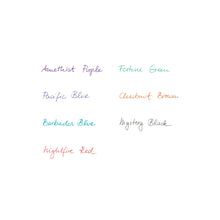 Amethist Purple
Festive Green
Pacific Blue
Chestnut Brown
Barbados Blue
Mystery Black
Nightfire Red